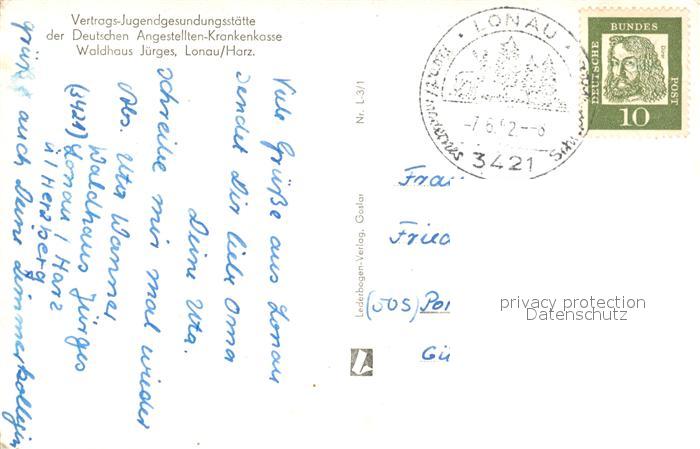 Vertrags-Jugendgesundungsstätte
der Deutschen Angestellten-Krankenkasse
Waldhaus Jürges, Lonau/Harz.
Viele Grüße aus Lonau
sendet Dir liebe Oma
Deine Uta.
schreibe mir mal wieder
Abs. Uta Wanner
Waldhaus Jürges
(3421) Lonau / Harz
ü/ Herzberg
grüße auch Deine Zimmerkollegin
Nr. L-3/1
Lederbogen-Verlag, Goslar
LONAU
-7.6.62.--8
3421
DEUTSCHE
BUNDES
POST
Dürer
10
Frau
Fried
(505) Por
Gü
privacy protection
Datenschutz